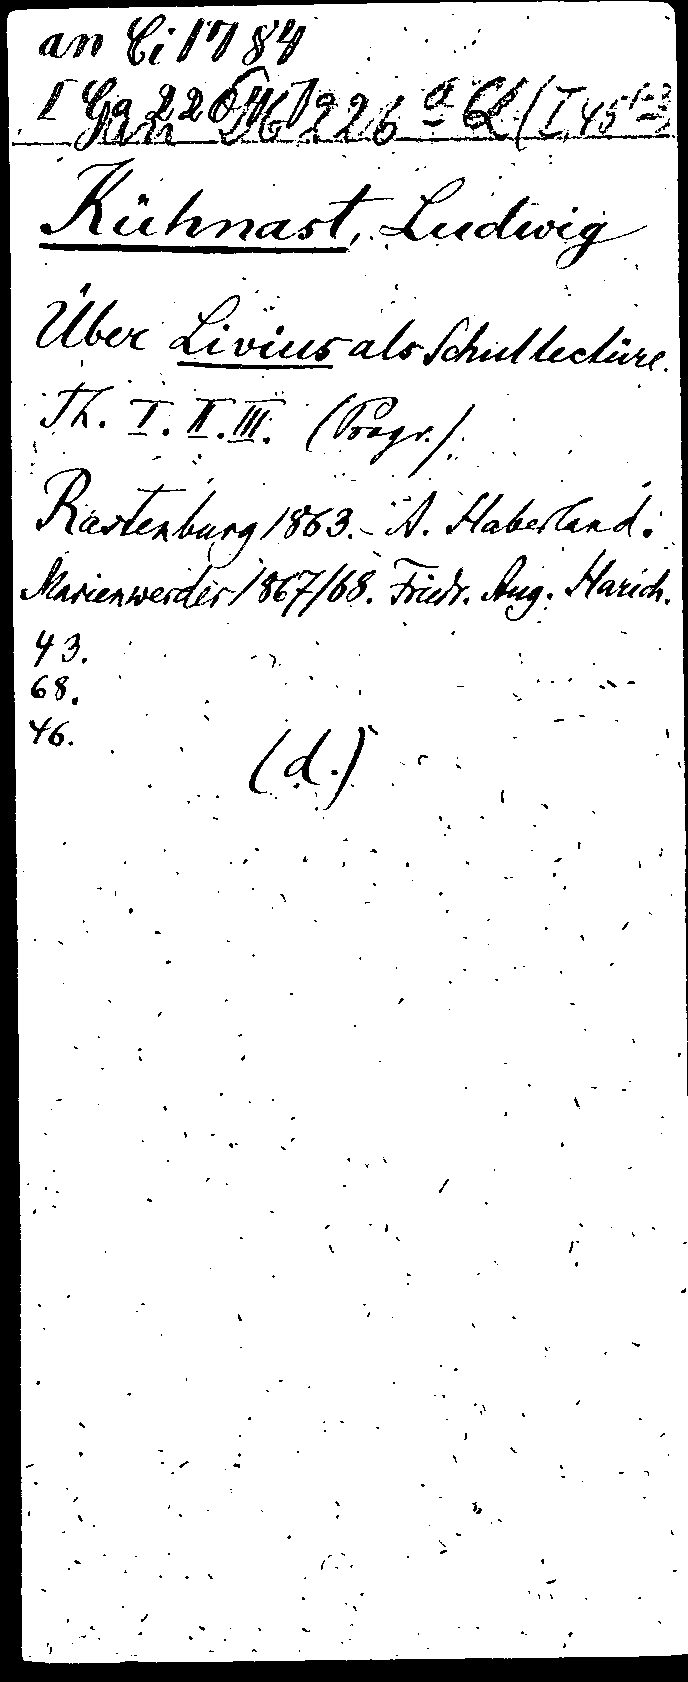 an Ci 1784
226 a (I, 45
Kühnast, Ludwig
Über Livius als Schullectüre.
Th. I. II. III. (Progr.)
Rastenburg 1863. - A. Haberland.
Marienwerder 1867/68. Friedr. Aug. Harich.
43.
68.
46.
(d.)